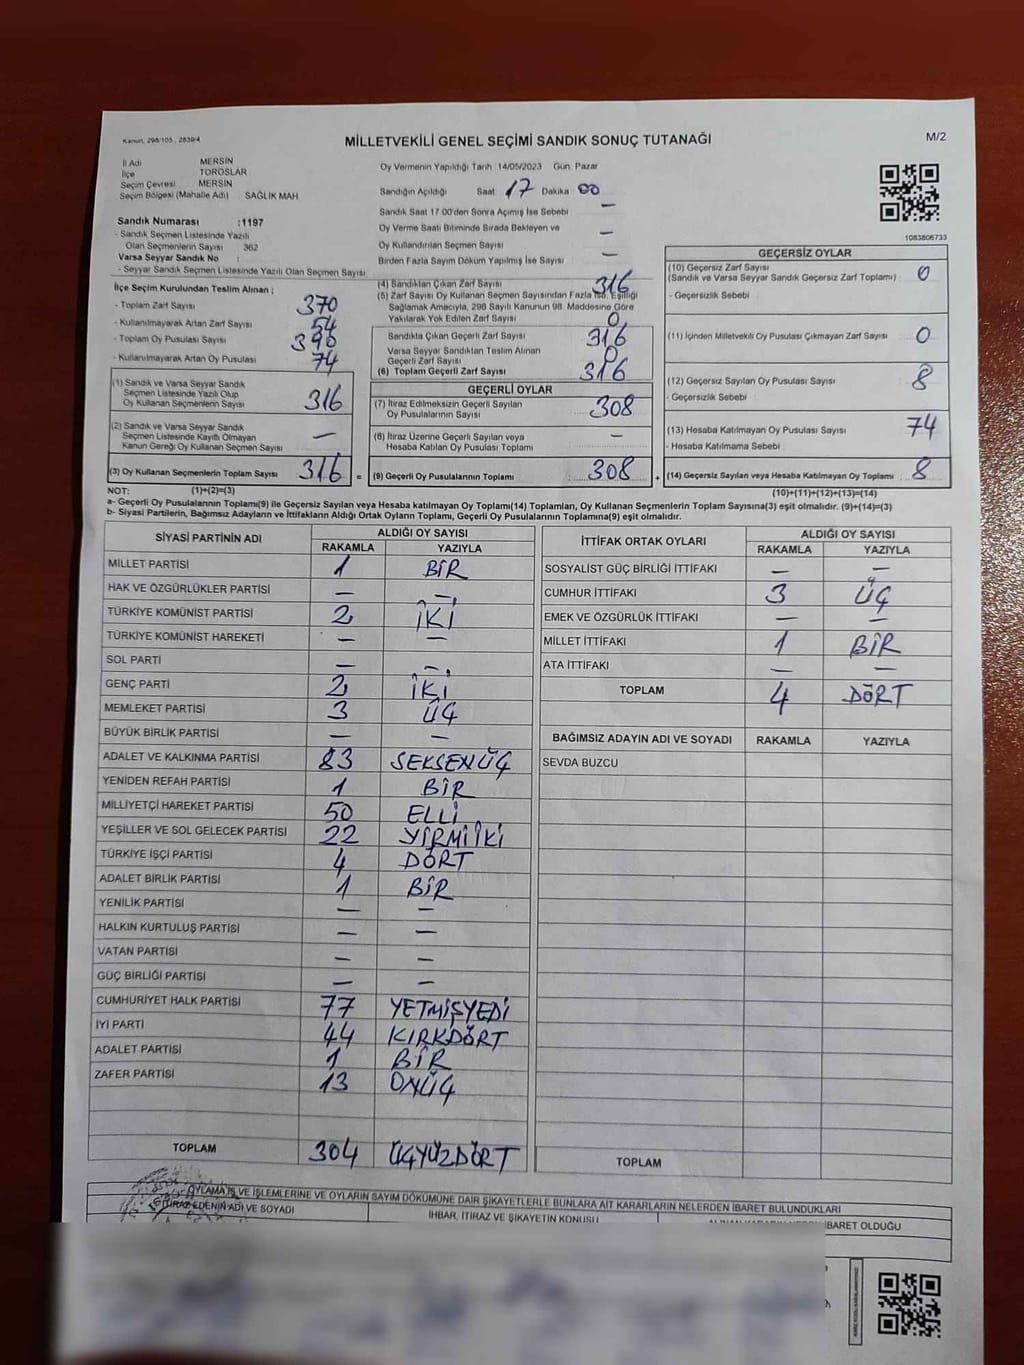 Kanun, 298/105 , 2839/4
MİLLETVEKİLİ GENEL SEÇİMİ SANDIK SONUÇ TUTANAĞI
M/2
İl Adı MERSİN
İlçe TOROSLAR
Seçim Çevresi MERSİN
Seçim Bölgesi (Mahalle Adı) SAĞLIK MAH
Sandık Numarası :1197
- Sandık Seçmen Listesinde Yazılı
Olan Seçmenlerin Sayısı 362
Varsa Seyyar Sandık No :
- Seyyar Sandık Seçmen Listesinde Yazılı Olan Seçmen Sayısı
Oy Vermenin Yapıldığı Tarih 14/05/2023 Gün Pazar
Sandığın Açıldığı Saat 17 Dakika 00
Sandık Saat 17.00'den Sonra Açılmış İse Sebebi —
Oy Verme Saati Bitiminde Sırada Bekleyen ve
Oy Kullandırılan Seçmen Sayısı —
Birden Fazla Sayım Döküm Yapılmış İse Sayısı —
1083806733
İlçe Seçim Kurulundan Teslim Alınan ;
- Toplam Zarf Sayısı 370
- Kullanılmayarak Artan Zarf Sayısı 54
- Toplam Oy Pusulası Sayısı 390
- Kullanılmayarak Artan Oy Pusulası 74
(1) Sandık ve Varsa Seyyar Sandık
Seçmen Listesinde Yazılı Olup
Oy Kullanan Seçmenlerin Sayısı 316
(2) Sandık ve Varsa Seyyar Sandık
Seçmen Listesinde Kayıtlı Olmayan
Kanun Gereği Oy Kullanan Seçmen Sayısı —
(3) Oy Kullanan Seçmenlerin Toplam Sayısı 316 =
(4) Sandıktan Çıkan Zarf Sayısı 316
(5) Zarf Sayısı Oy Kullanan Seçmen Sayısından Fazla İse, Eşitliği
Sağlamak Amacıyla, 298 Sayılı Kanunun 98. Maddesine Göre
Yakılarak Yok Edilen Zarf Sayısı 0
Sandıkta Çıkan Geçerli Zarf Sayısı 316
Varsa Seyyar Sandıktan Teslim Alınan
Geçerli Zarf Sayısı 0
(6) Toplam Geçerli Zarf Sayısı 316
GEÇERLİ OYLAR
(7) İtiraz Edilmeksizin Geçerli Sayılan
Oy Pusulalarının Sayısı 308
(8) İtiraz Üzerine Geçerli Sayılan veya
Hesaba Katılan Oy Pusulaları Toplamı —
(9) Geçerli Oy Pusulalarının Toplamı 308 +
GEÇERSİZ OYLAR
(10) Geçersiz Zarf Sayısı
(Sandık ve Varsa Seyyar Sandık Geçersiz Zarf Toplamı) 0
- Geçersizlik Sebebi
(11) İçinden Milletvekili Oy Pusulası Çıkmayan Zarf Sayısı 0
(12) Geçersiz Sayılan Oy Pusulası Sayısı 8
- Geçersizlik Sebebi
(13) Hesaba Katılmayan Oy Pusulası Sayısı 74
- Hesaba Katılmama Sebebi
(14) Geçersiz Sayılan veya Hesaba Katılmayan Oy Toplamı 8
NOT: (1)+(2)=(3) (10)+(11)+(12)+(13)=(14)
a- Geçerli Oy Pusulalarının Toplamı(9) ile Geçersiz Sayılan veya Hesaba katılmayan Oy Toplamı(14) Toplamları, Oy Kullanan Seçmenlerin Toplam Sayısına(3) eşit olmalıdır. (9)+(14)=(3)
b- Siyasi Partilerin, Bağımsız Adayların ve İttifakların Aldığı Ortak Oyların Toplamı, Geçerli Oy Pusulalarının Toplamına(9) eşit olmalıdır.
SİYASİ PARTİNİN ADI ALDIĞI OY SAYISI
RAKAMLA YAZIYLA
MİLLET PARTİSİ 1 BİR
HAK VE ÖZGÜRLÜKLER PARTİSİ — —
TÜRKİYE KOMÜNİST PARTİSİ 2 İKİ
TÜRKİYE KOMÜNİST HAREKETİ — —
SOL PARTİ — —
GENÇ PARTİ 2 İKİ
MEMLEKET PARTİSİ 3 ÜÇ
BÜYÜK BİRLİK PARTİSİ — —
ADALET VE KALKINMA PARTİSİ 83 SEKSENÜÇ
YENİDEN REFAH PARTİSİ 1 BİR
MİLLİYETÇİ HAREKET PARTİSİ 50 ELLİ
YEŞİLLER VE SOL GELECEK PARTİSİ 22 YİRMİİKİ
TÜRKİYE İŞÇİ PARTİSİ 4 DÖRT
ADALET BİRLİK PARTİSİ 1 BİR
YENİLİK PARTİSİ — —
HALKIN KURTULUŞ PARTİSİ — —
VATAN PARTİSİ — —
GÜÇ BİRLİĞİ PARTİSİ — —
CUMHURİYET HALK PARTİSİ 77 YETMİŞYEDİ
İYİ PARTİ 44 KIRKDÖRT
ADALET PARTİSİ 1 BİR
ZAFER PARTİSİ 13 ONÜÇ
TOPLAM 304 ÜÇYÜZDÖRT
İTTİFAK ORTAK OYLARI ALDIĞI OY SAYISI
RAKAMLA YAZIYLA
SOSYALİST GÜÇ BİRLİĞİ İTTİFAKI — —
CUMHUR İTTİFAKI 3 ÜÇ
EMEK VE ÖZGÜRLÜK İTTİFAKI — —
MİLLET İTTİFAKI 1 BİR
ATA İTTİFAKI — —
TOPLAM 4 DÖRT
BAĞIMSIZ ADAYIN ADI VE SOYADI RAKAMLA YAZIYLA
SEVDA BUZCU
TOPLAM
OYLAMA İŞ VE İŞLEMLERİNE VE OYLARIN SAYIM DÖKÜMÜNE DAİR ŞİKAYETLERLE BUNLARA AİT KARARLARIN NELERDEN İBARET BULUNDUKLARI
İTİRAZ EDENİN ADI VE SOYADI
İHBAR, İTİRAZ VE ŞİKAYETİN KONUSU
İBARET OLDUĞU